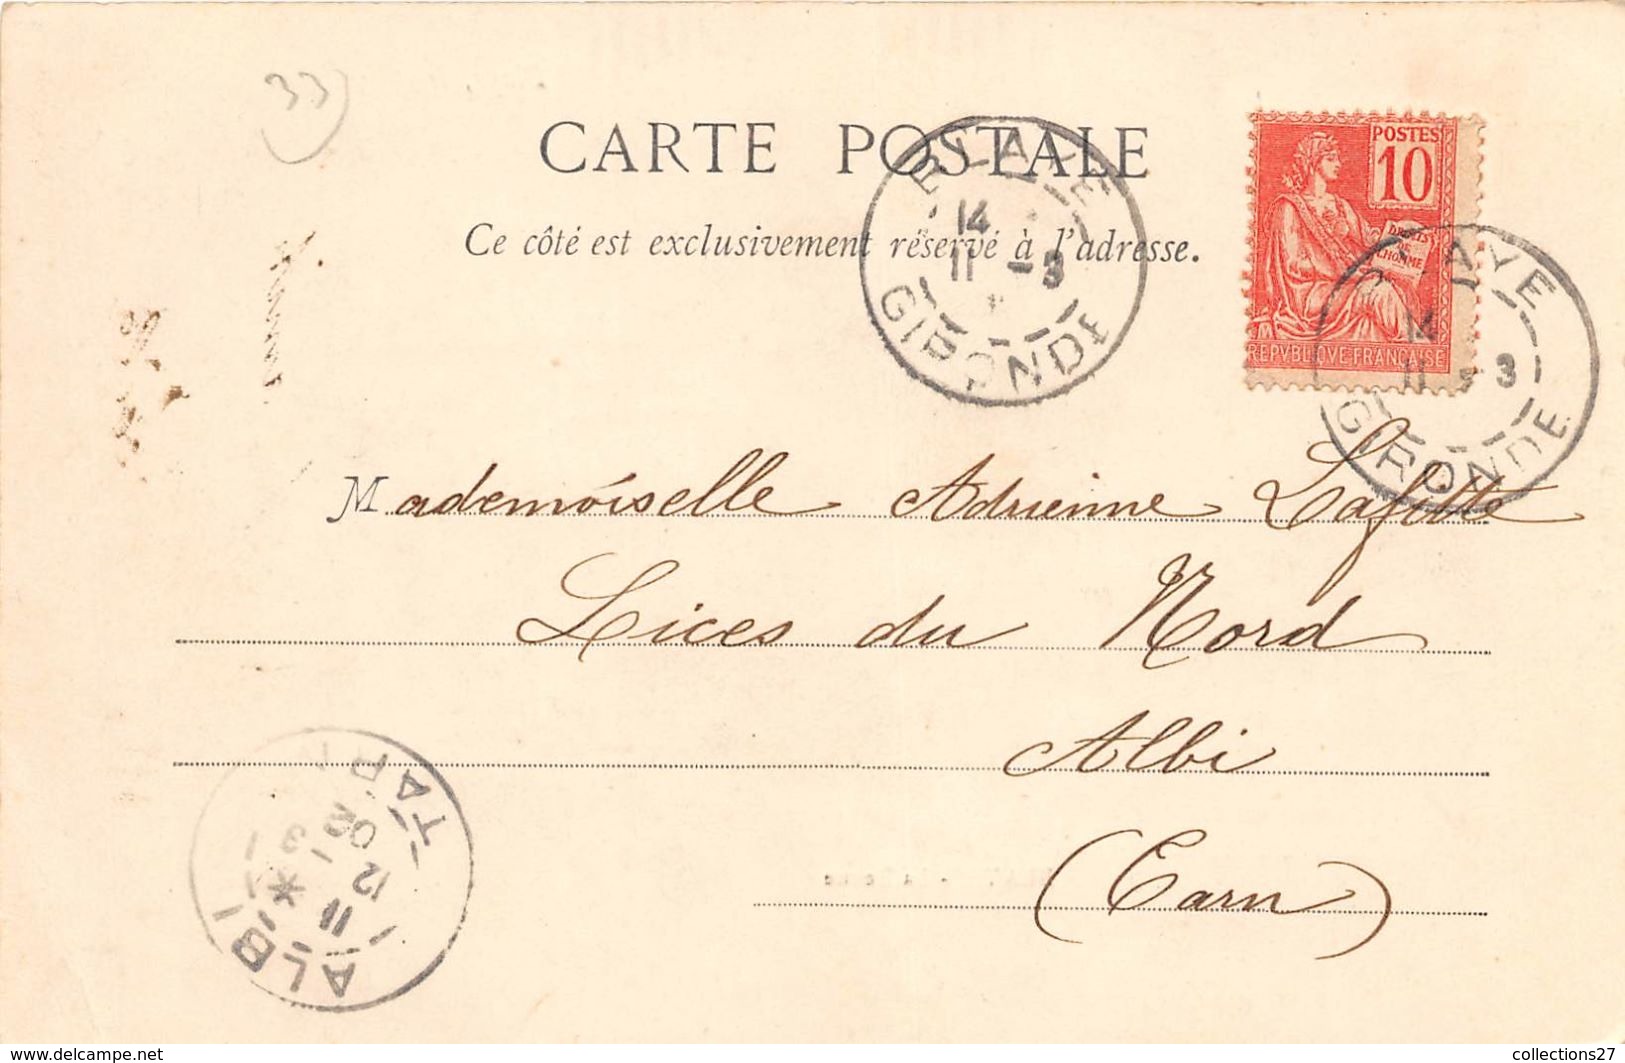 33
CARTE POSTALE
Ce côté est exclusivement réservé à l'adresse.
BLAYE
14
11 - 3
GIRONDE
POSTES
10
DROITS
DE
L'HOMME
REPVBLIQVE FRANÇAISE
BLAYE
14
11 - 3
GIRONDE
Mademoiselle Adrienne Lafitte
Lices du Nord
Albi
(Tarn)
ALBI
TARN
www.delcampe.net
collections27